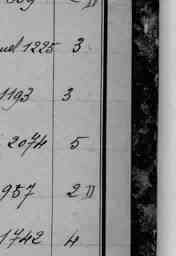 1225 3
1193 3
2074 5
957 2 D
1742 4